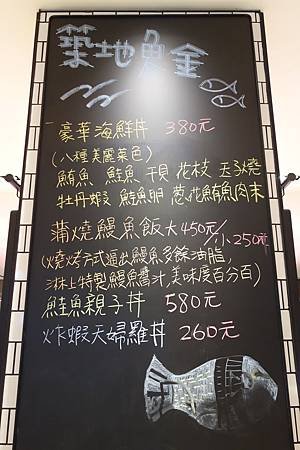 築地魚金
豪華海鮮丼 380元
(八種美麗菜色)
鮪魚 鮭魚 干貝 花枝 玉子燒
牡丹蝦 鮭魚卵 蔥花鮪魚肉末
蒲燒鰻魚飯 大450元/小250元
(燒烤方式逼出鰻魚多餘油脂,
淋上特製鰻魚醬汁,美味度百分百)
鮭魚親子丼 580元
炸蝦天婦羅丼 260元